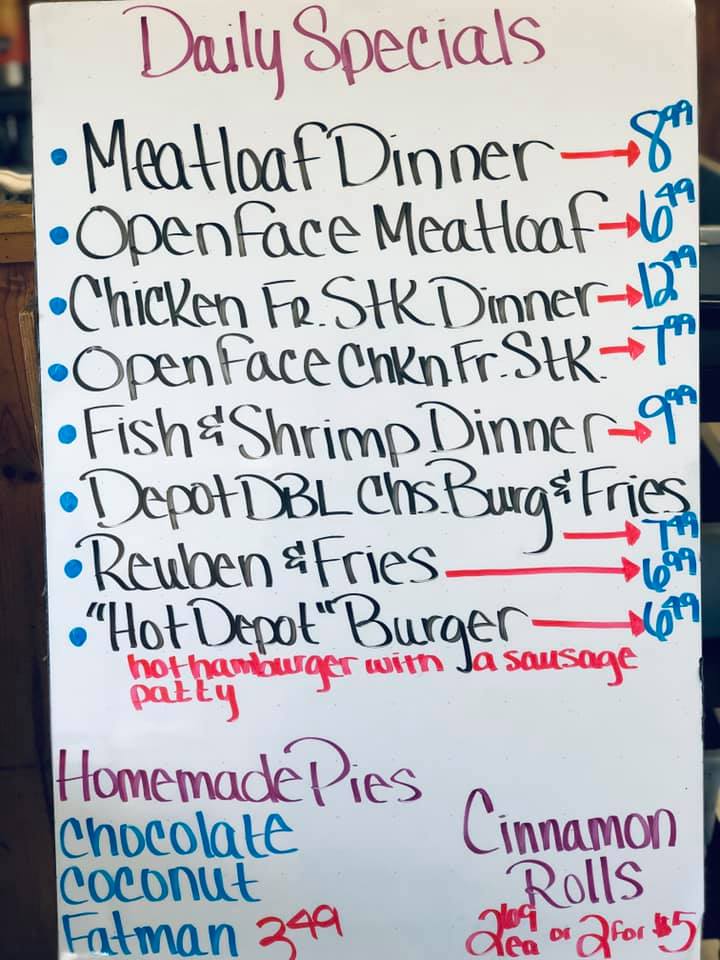 Daily Specials
• Meatloaf Dinner → 8.99
• Open Face Meatloaf → 6.49
• Chicken Fr. Stk Dinner → 12.99
• Open Face Chkn Fr. Stk. → 7.99
• Fish & Shrimp Dinner → 9.99
• Depot DBL Chs. Burg & Fries
→ 7.99
• Reuben & Fries → 6.99
• "Hot Depot" Burger → 6.49
hot hamburger with a sausage
patty
Homemade Pies
Chocolate
Coconut
Fatman 3.49
Cinnamon
Rolls
2.69 ea or 2 for $5